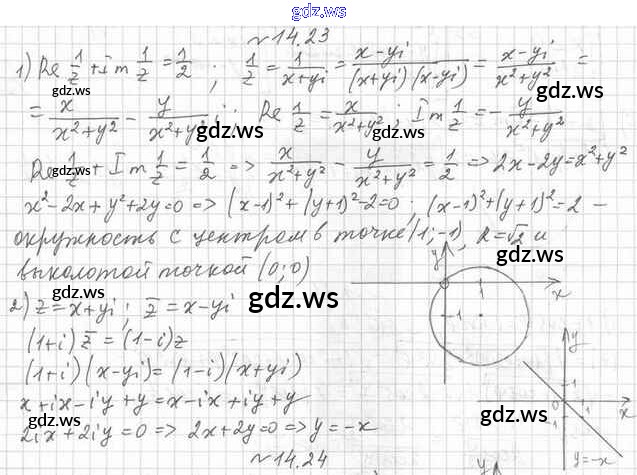 gdz.ws
№14.23
1) Re 1/z + Im 1/z = 1/2 ; 1/z = 1/(x+yi) = (x-yi)/((x+yi)(x-yi)) = (x-yi)/(x²+y²) =
gdz.ws
gdz.ws
= x/(x²+y²) - y/(x²+y²) i ; Re 1/z = x/(x²+y²) ; Im 1/z = - y/(x²+y²)
gdz.ws
gdz.ws
Re 1/z + Im 1/z = 1/2 => x/(x²+y²) - y/(x²+y²) = 1/2 => 2x-2y=x²+y²
gdz.ws
x²-2x+y²+2y=0 => (x-1)²+(y+1)²-2=0 ; (x-1)²+(y+1)²=2 –
окружность с центром в точке (1;-1), R=√2 и
выколотой точкой (0;0)
gdz.ws
2) z=x+yi ; z̄=x-yi
gdz.ws
(1+i) z̄ = (1-i)z
(1+i)(x-yi)=(1-i)(x+yi)
x+ix-iy+y=x-ix+iy+y
2ix+2iy=0 => 2x+2y=0 => y=-x
y
1
x
-1
y
1
gdz.ws
0
1
x
y=-x
№14.24
y